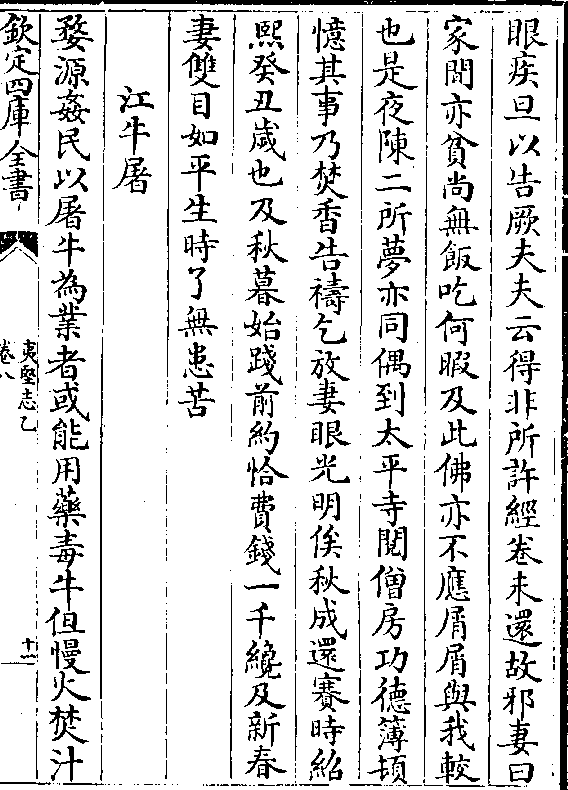 眼疾旦以告厥夫夫云得非所許經卷未還故邪妻曰
家間亦貧尚無飯吃何暇及此佛亦不應屑屑與我較
也是夜陳二所夢亦同偶到太平寺閲僧房功德簿頓
憶其事乃焚香告禱乞放妻眼光明俟秋成還賽時紹
熙癸丑歲也及秋暮始踐前約恰費錢一千纔及新春
妻雙目如平生時了無患苦
江牛屠
婺源姦民以屠牛為業者或能用藥毒牛但慢火焚汁
欽定四庫全書
夷堅志乙
卷八
十一